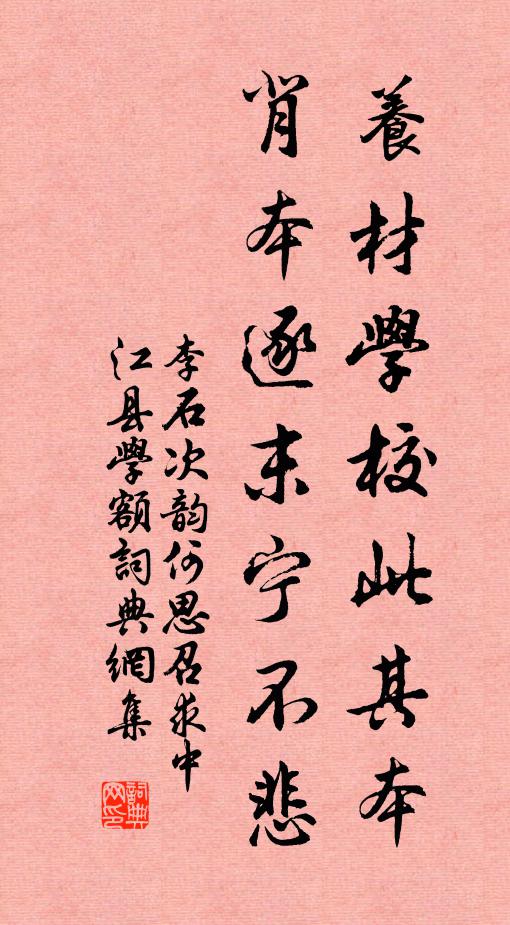 養材學校此其本
背本逐末宁不悲
李石次韵何思召求中
江县學额詞典網集
詞典网印